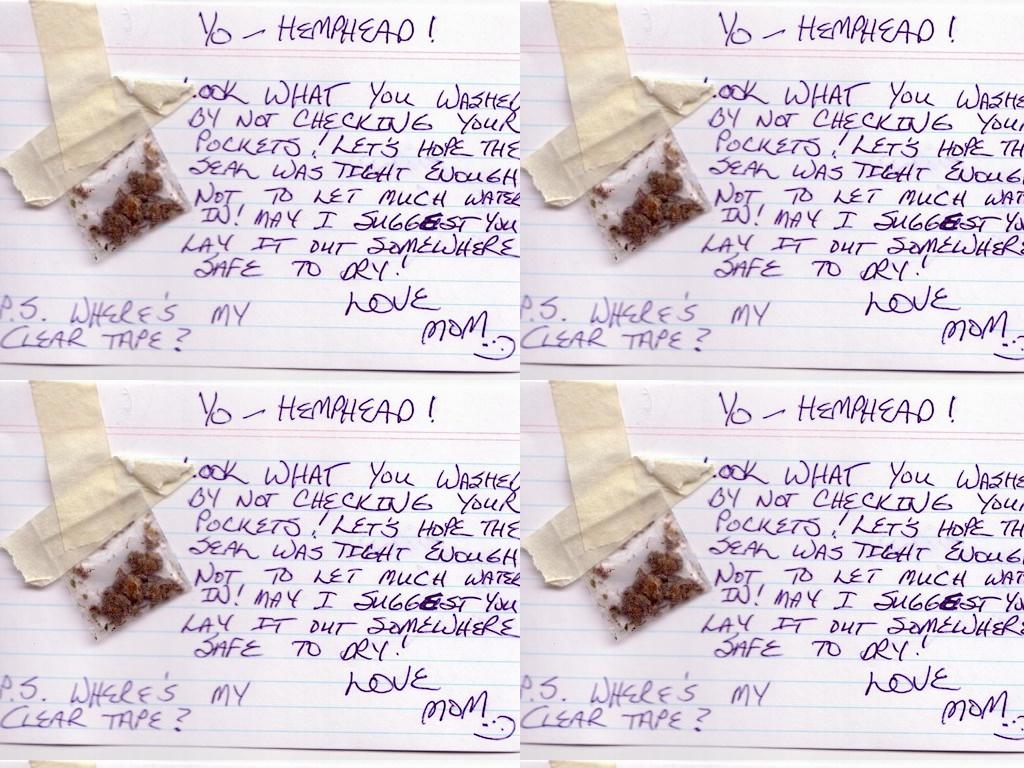 YO — HEMPHEAD!
LOOK WHAT YOU WASHED
BY NOT CHECKING YOUR
POCKETS! LET'S HOPE THE
SEAL WAS TIGHT ENOUGH
NOT TO LET MUCH WATER
IN! MAY I SUGGEST YOU
LAY IT OUT SOMEWHERE
SAFE TO DRY!
LOVE
MOM
P.S. WHERE'S MY
CLEAR TAPE?
YO — HEMPHEAD!
LOOK WHAT YOU WASHE
BY NOT CHECKING YOUR
POCKETS! LET'S HOPE THE
SEAL WAS TIGHT ENOUGH
NOT TO LET MUCH WAT
IN! MAY I SUGGEST YOU
LAY IT OUT SOMEWHERE
SAFE TO DRY!
LOVE
MOM
P.S. WHERE'S MY
CLEAR TAPE?
YO — HEMPHEAD!
LOOK WHAT YOU WASHED
BY NOT CHECKING YOUR
POCKETS! LET'S HOPE THE
SEAL WAS TIGHT ENOUGH
NOT TO LET MUCH WATER
IN! MAY I SUGGEST YOU
LAY IT OUT SOMEWHERE
SAFE TO DRY!
LOVE
MOM
P.S. WHERE'S MY
CLEAR TAPE?
YO — HEMPHEAD!
LOOK WHAT YOU WASHE
BY NOT CHECKING YOUR
POCKETS! LET'S HOPE THE
SEAL WAS TIGHT ENOUGH
NOT TO LET MUCH WAT
IN! MAY I SUGGEST YOU
LAY IT OUT SOMEWHERE
SAFE TO DRY!
LOVE
MOM
P.S. WHERE'S MY
CLEAR TAPE?